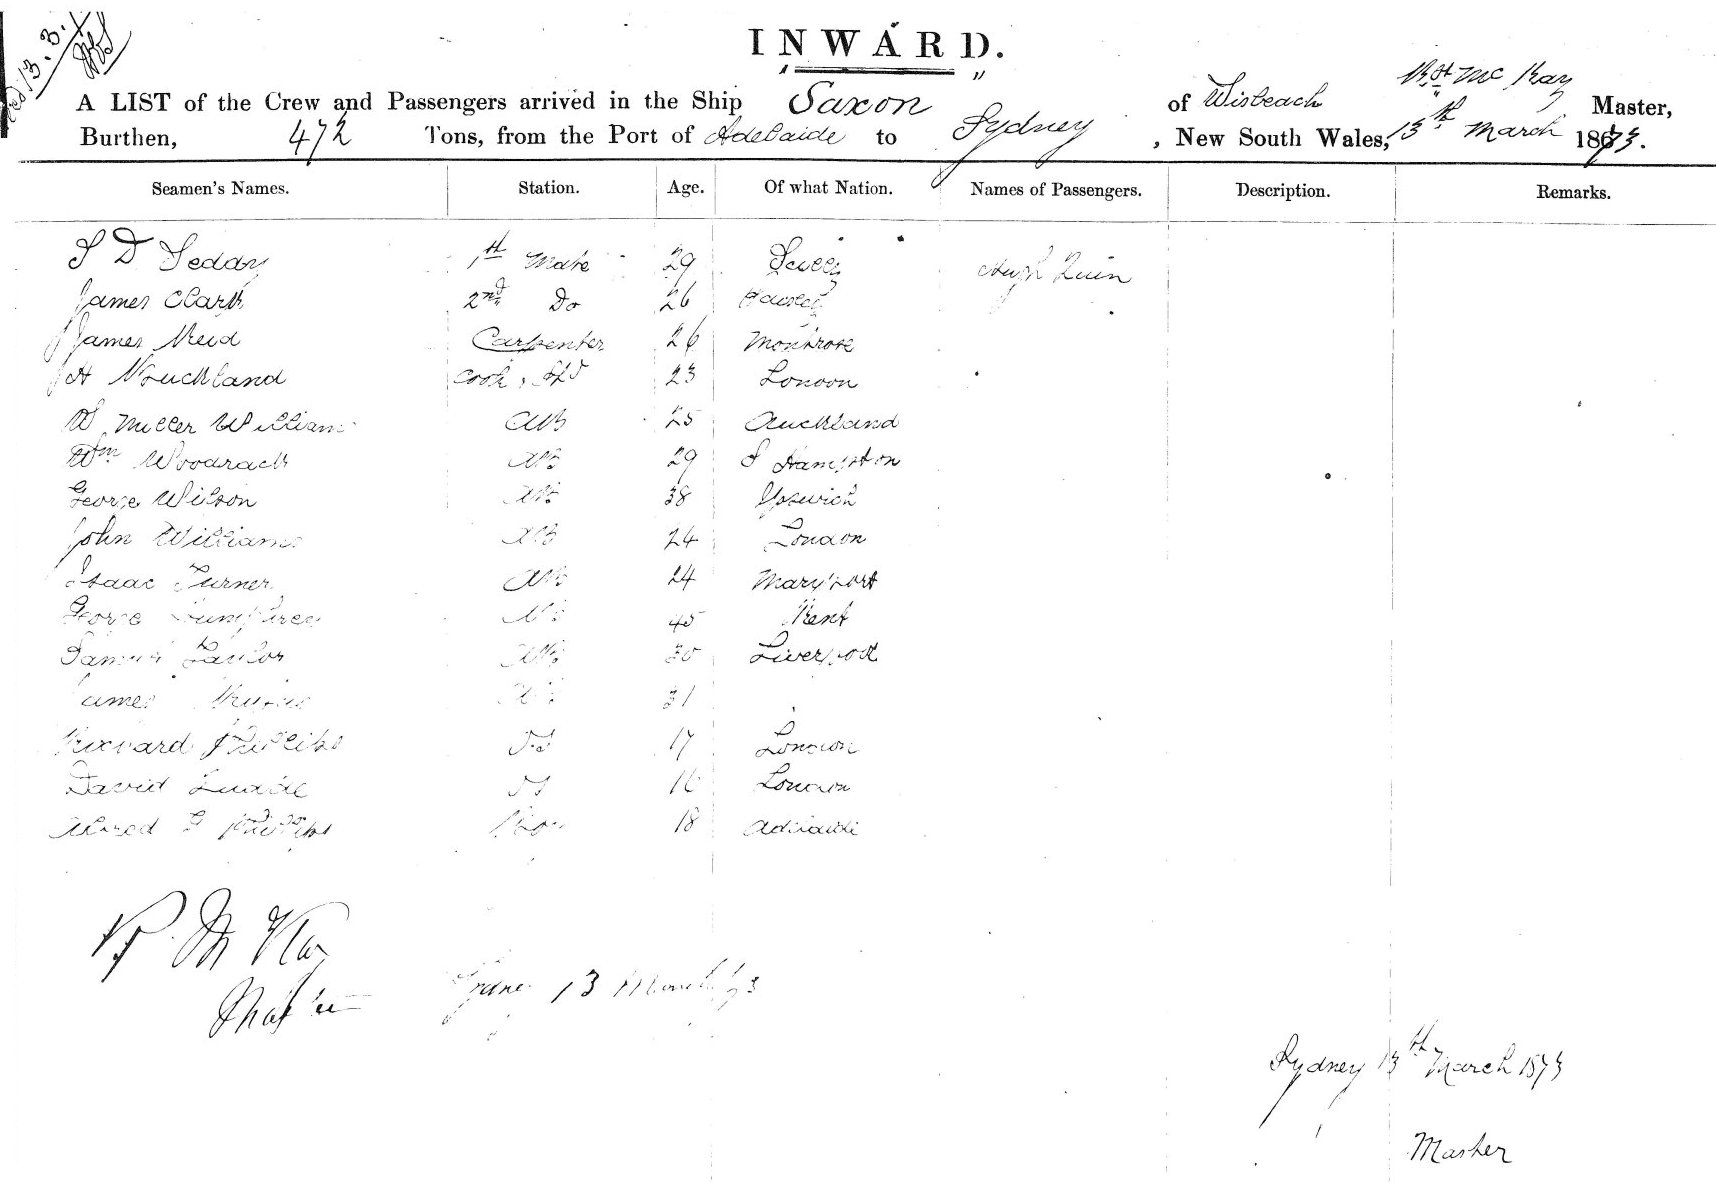 13.3.
INWARD.
A LIST of the Crew and Passengers arrived in the Ship Saxon of Wisbeach Rt Mc Kay Master,
Burthen, 472 Tons, from the Port of Adelaide to Sydney, New South Wales, 13th March 1873.
Seamen's Names. Station. Age. Of what Nation. Names of Passengers. Description. Remarks.
1st Mate 29 Hugh Quin
James Clark 2nd Do 26
James Reid Carpenter 26 Montrose
Cook, Std 23 London
Miller William AB 25 Auckland
Wm AB 29 S Hampton
George Wilson AB 38 Ipswich
John Williams AB 24 London
Isaac Turner AB 24 Maryport
George Humphrey AB 45 Kent
Samuel Taylor AB 30 Liverpool
James AB 31
Richard Phillips OS 17 London
David OS 16 London
Alfred G Phillips Boy 18 Adelaide
R. Mc Kay
Master Sydney 13 March /73
Sydney 13th March 1873
Master